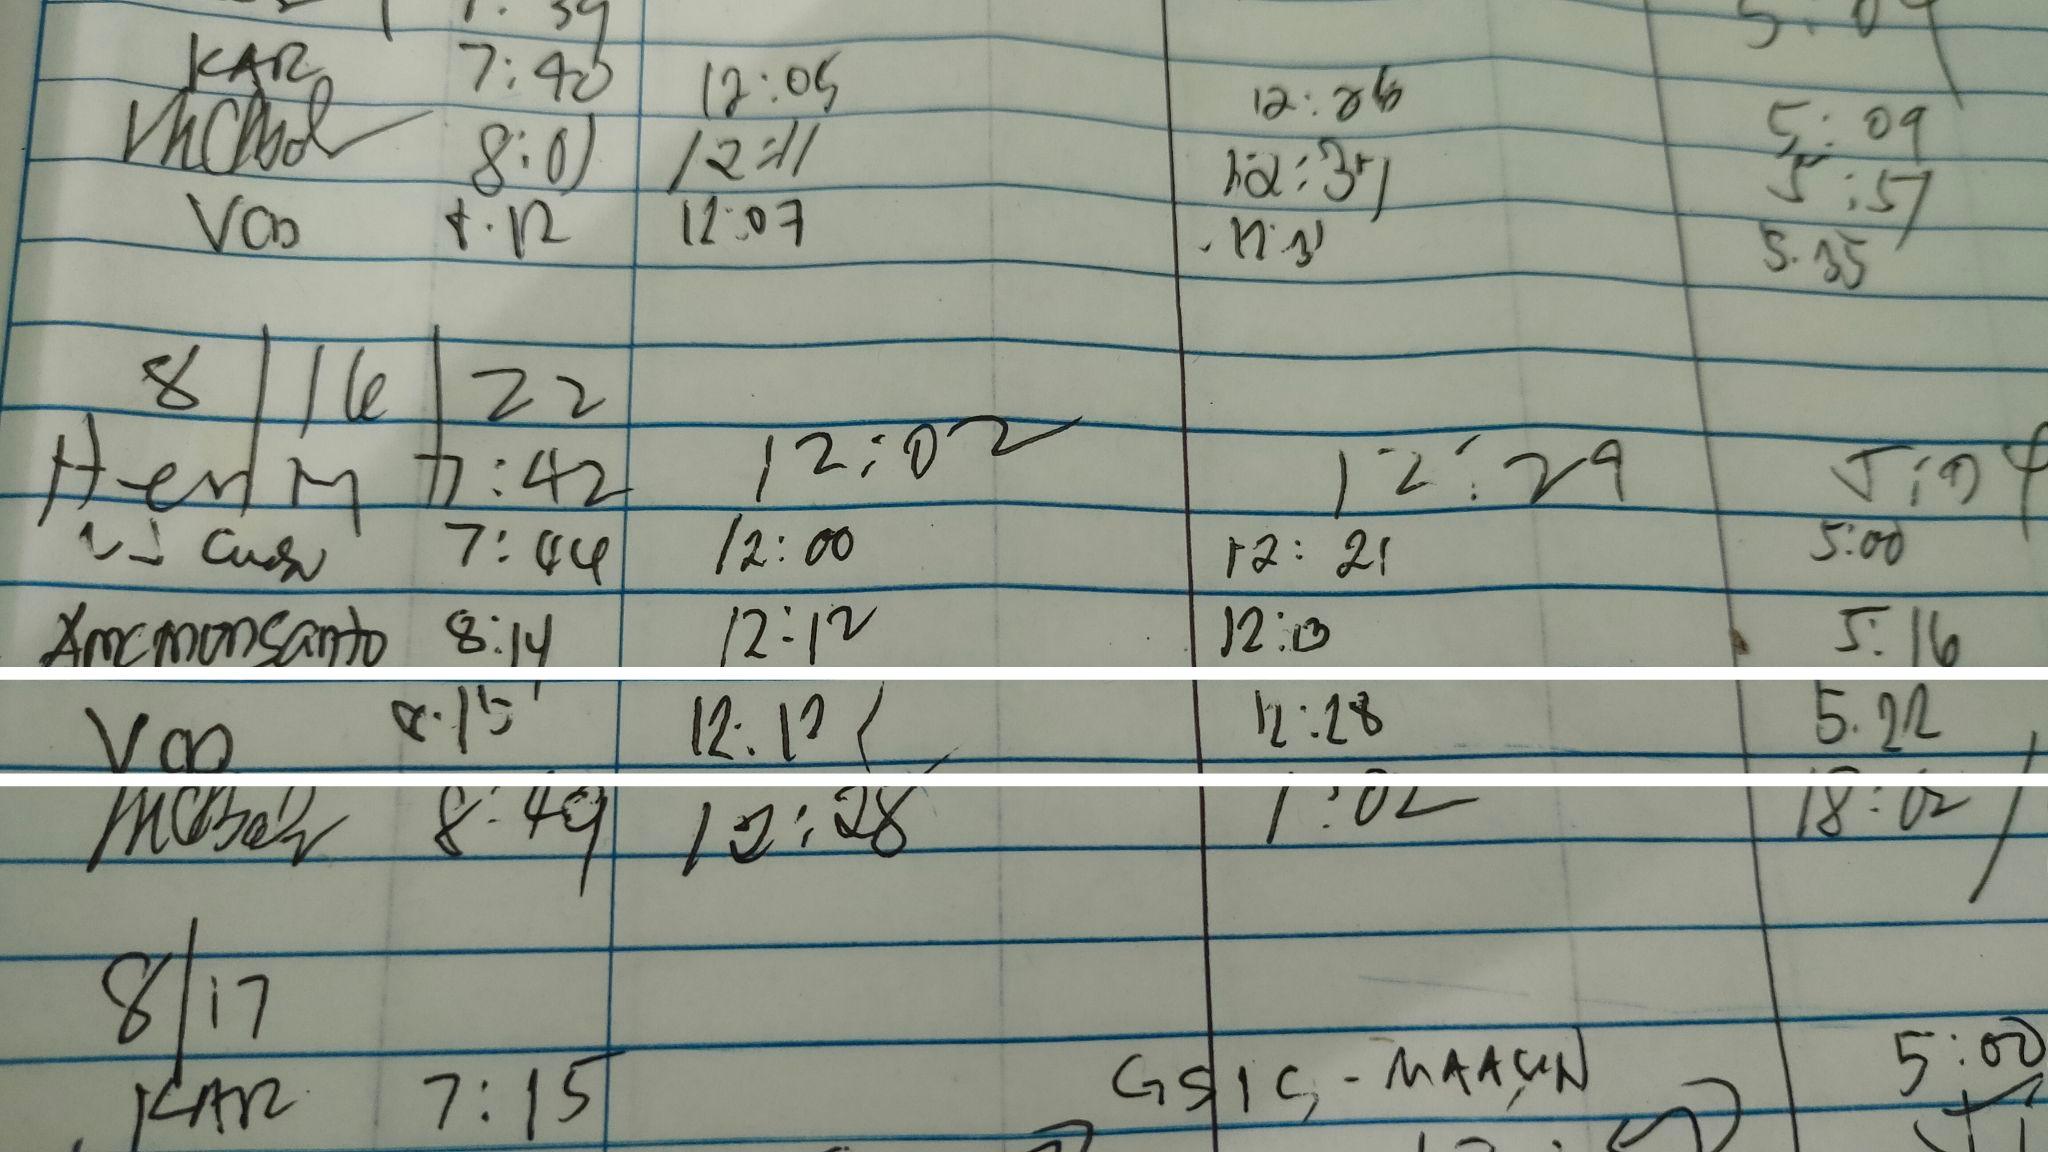 7:39 5:09
KAR 7:40 12:05 12:26 5:09
8:01 12:11 12:31 5:57
VCD 8.12 12:07 12:31 5.35
8/16/22
Henry 7:42 12:02 12:29 5:04
7:44 12:00 12:21 5:00
Amcmonsanto 8:14 12:12 12:13 5:16
VCD 8.15 12:12 12:28 5.22
8:49 12:28 1:02 18:02
8/17
KAR 7:15 GSIS - MAASIN 5:00